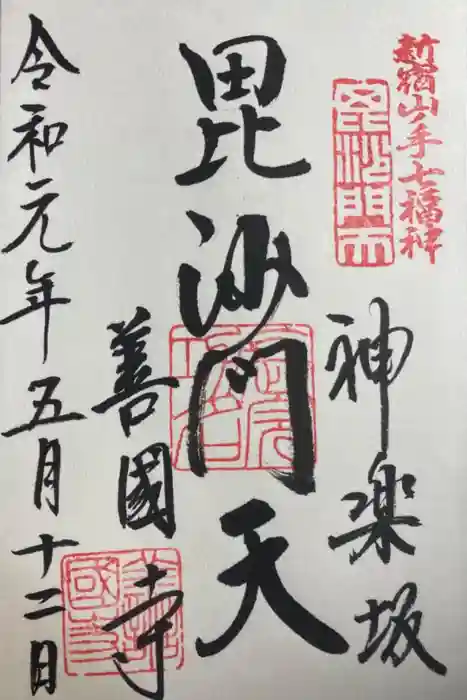 新宿山ノ手七福神
毘沙門天
神楽坂
毘沙門天
善國寺
令和元年五月十二日
善國寺